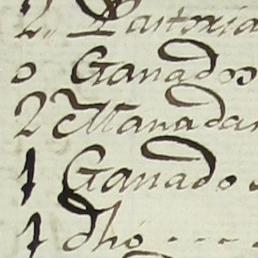 2. Pastoria
0 Ganados
2 Manadas
1 Ganado
1 dho - - - -